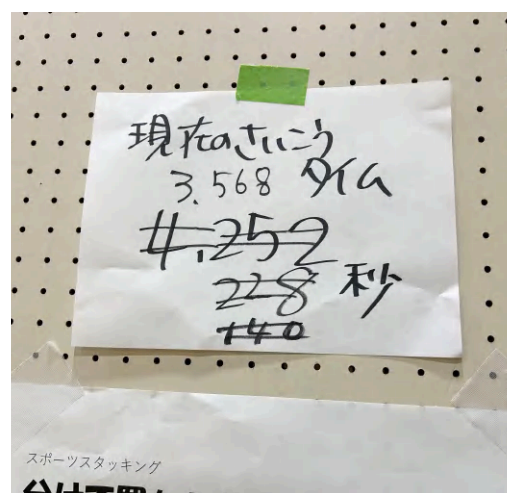 現在のさいこう
3.568 タイム
4.252
228 秒
140
スポーツスタッキング